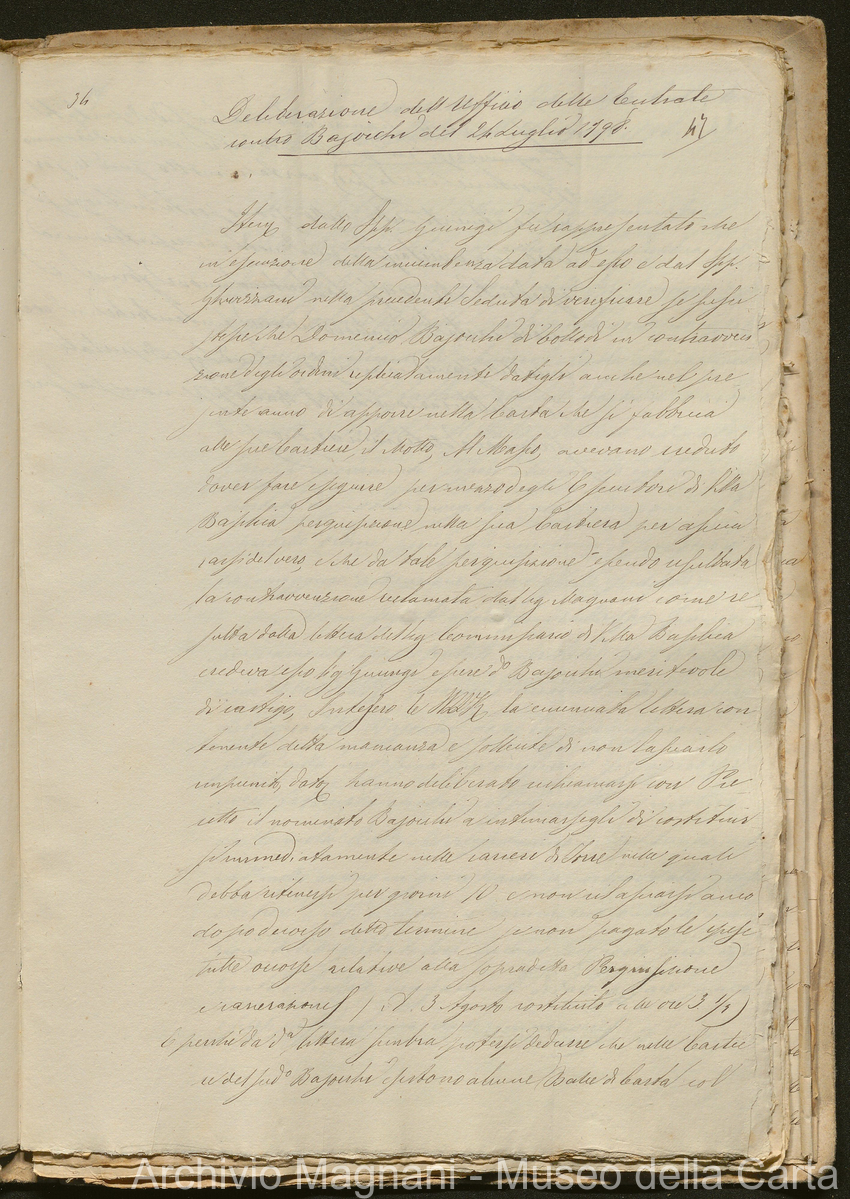 36
Deliberazione dell'Uffizio delle Entrate
contro Bajocchi del 24 Luglio 1798.
47
Item dallo Spp. Guinigi fu rappresentato che
in esecuzione della incumbenza data ad esso e dal Spp.
Ghivizzani nella precedente Seduta di verificare se fusse
che Domenico Bajocchi di Collodi in contravven
zione degli ordini replicatamente datigli anche nel pre
sente anno di apporre nella Carta che si fabbrica
alle sue Cartiere il Motto, Al Masso, avevano creduto
dover fare eseguire per mezzo degli Esecutori di Villa
Basilica perquisizione nella sua Cartiera per assicu
rarsi del vero, e che da tale perquisizione essendo resultata
la contravvenzione reclamata dal Sig Magnani come re
sulta dalla lettera del Sig Commissario di Villa Basilica
credeva esso Sig Guinigi essere do Bajocchi meritevole
di castigo, Intesero le la enunciata lettera con
tenente detta mancanza e di non lasciarlo
impunito, hanno deliberato richiamarsi con Pre
cetto il nominato Bajocchi a intimarsegli di costituir
si immediatamente nelle carceri di Torre nelle quali
debba ritenersi per giorni 10 e non rilasciarsi anco
dopo decorso detto termine se non pagato le spese
tutte occorse relative alla sopradetta Perquisizione
e carcerazione / il 3 Agosto costituito alle ore 3 1/2)
E perchè da da lettera sembra potersi dedurre che nelle Cartie
re del sudo Bajocchi esistono alcune Balle di Carta col
Archivio Magnani - Museo della Carta